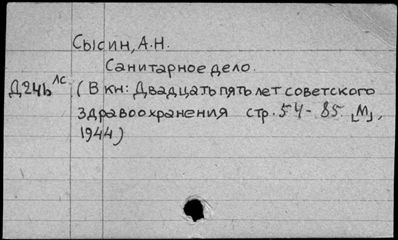 Сысин, А.Н.
Санитарное дело.
Д24ь ЛС (В кн: Двадцать пять лет советского
здравоохранения стр. 54-85. [М],
1944)